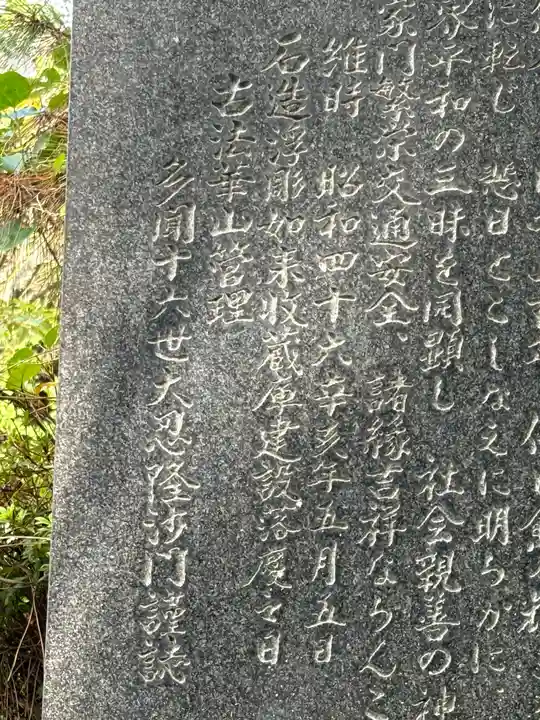 に転じ 悲日とこしなえに明らかに
家平和の三昧を開顕し 社会親善の神
家門繁栄交通安全、諸縁吉祥ならんこ
維時 昭和四十六辛亥年五月五日
石造浮彫如来収蔵庫建設落慶之日
古法華山管理
多聞十六世大忍隆沙門謹誌